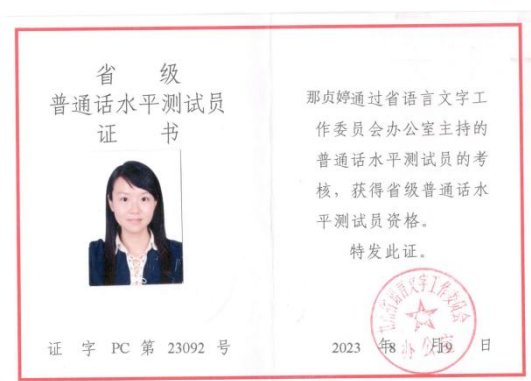 省 级
普通话水平测试员
证 书
证 字 PC 第 23092 号
那贞婷通过省语言文字工
作委员会办公室主持的
普通话水平测试员的考
核，获得省级普通话水
平测试员资格。
特发此证。
省语言文字工作委员会
办公室
2023 年8 月19 日